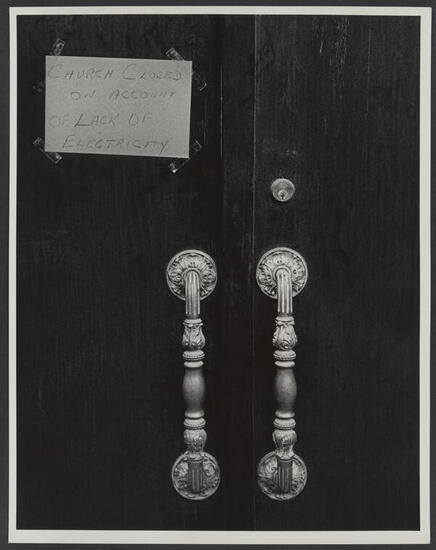 CHURCH CLOSED
ON ACCOUNT
OF LACK OF
ELECTRICITY